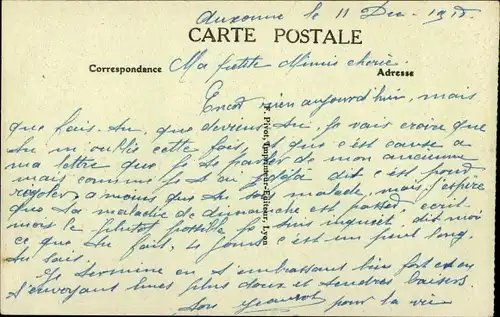 Auxonne le 11 Dec 1918.
CARTE POSTALE
Correspondance Ma petite Mimis chérie. Adresse
Encor rien aujourd'hui, mais
que fais-tu, que deviens-tu, je vais croire que
tu m'oublie cette fois, que c'est cause a
ma lettre que je te parler de mon ancienne
mais comme je t'ai déjà dit c'est pour
rigoler a moins que tu soi malade, mais j'espère
que ta maladie de dimanche est passé, ecrit
mois le plutot possible je suis inquiet dit moi
ce que tu fait, 4 jours c'est un peut long
tu sais.
Je termine en t'embrassant bien fort et en
t'envoyant mes plus doux et tendres baisers
Ton pour la vie
P. Pivot, Imprimeur-Editeur, Lyon